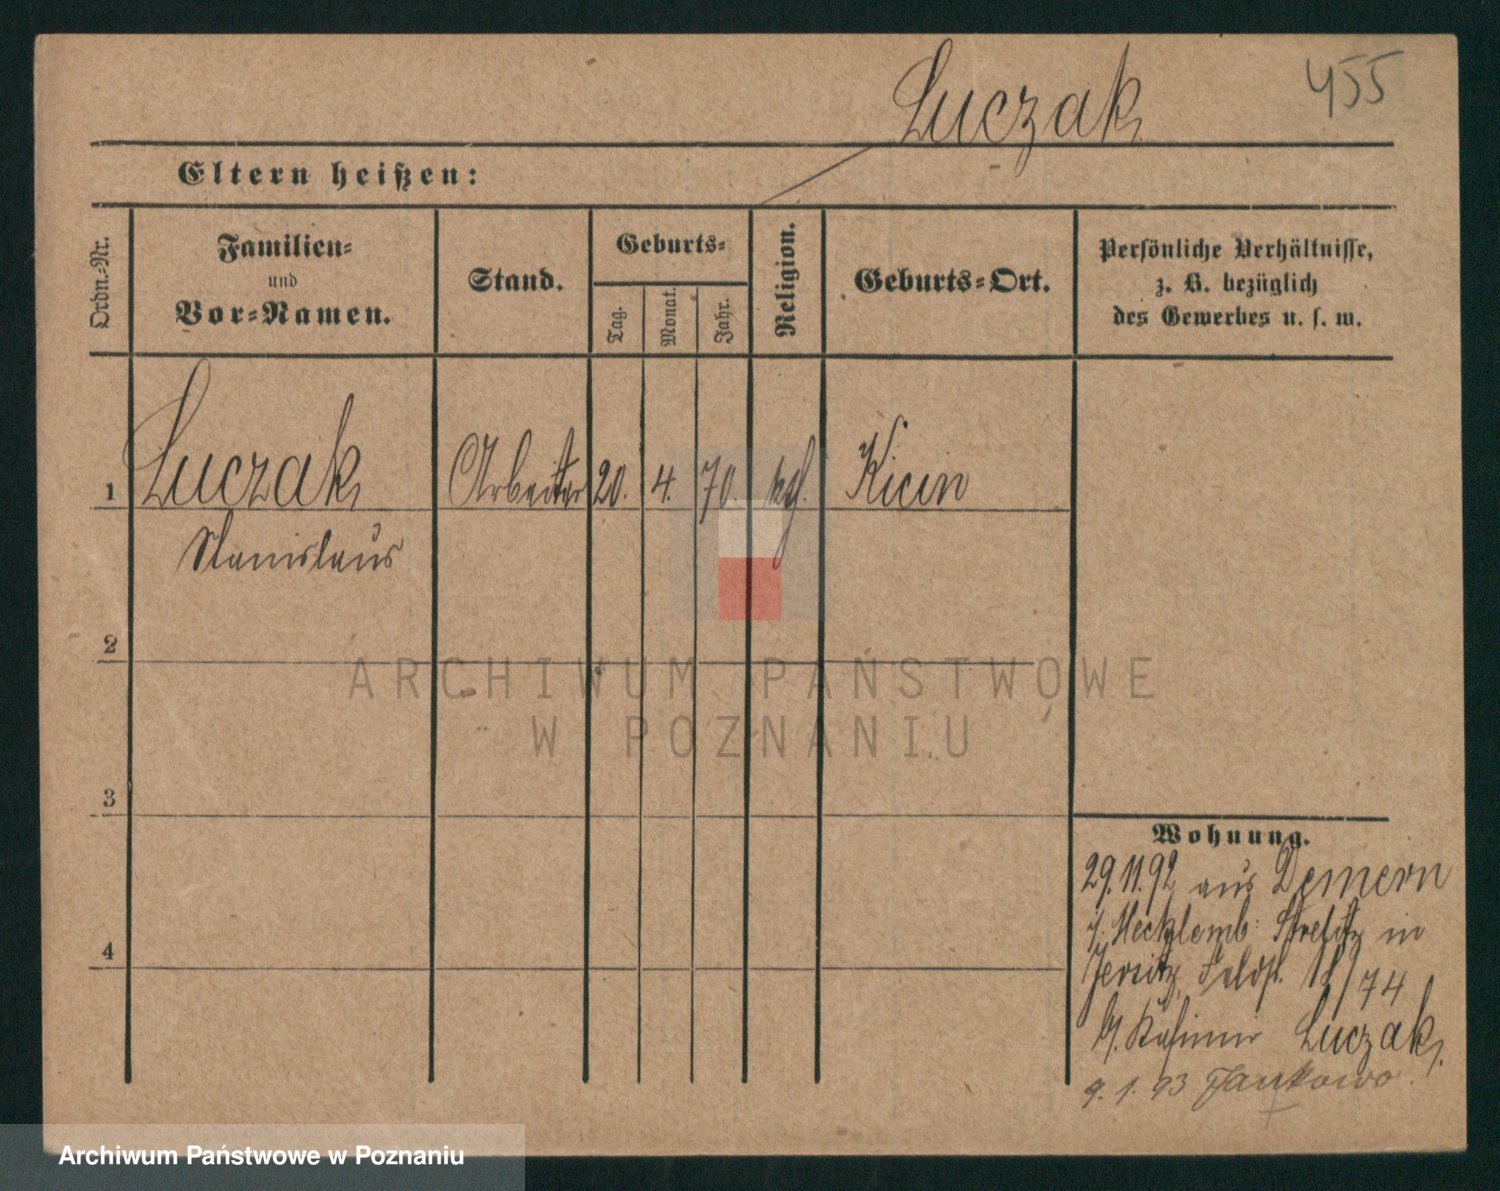 Luczak
455
Eltern heißen:
Ordn.-Nr.
Familien-
und
Vor-Namen.
Stand.
Geburts-
Tag.
Monat.
Jahr.
Religion.
Geburts-Ort.
Persönliche Verhältnisse,
z. B. bezüglich
des Gewerbes u. s. w.
1 Luczak Arbeiter 20. 4. 70. Kicin
Stanislaus
2
ARCHIWUM PAŃSTWOWE
W POZNANIU
3
4
Wohnung.
29.11.92 aus Demern
i/. Mecklemb. Strelitz in
Jersitz, Feldst. 18/74
b/. Kasimir Luczak.
9. 1. 93 Jankowo.
Archiwum Państwowe w Poznaniu